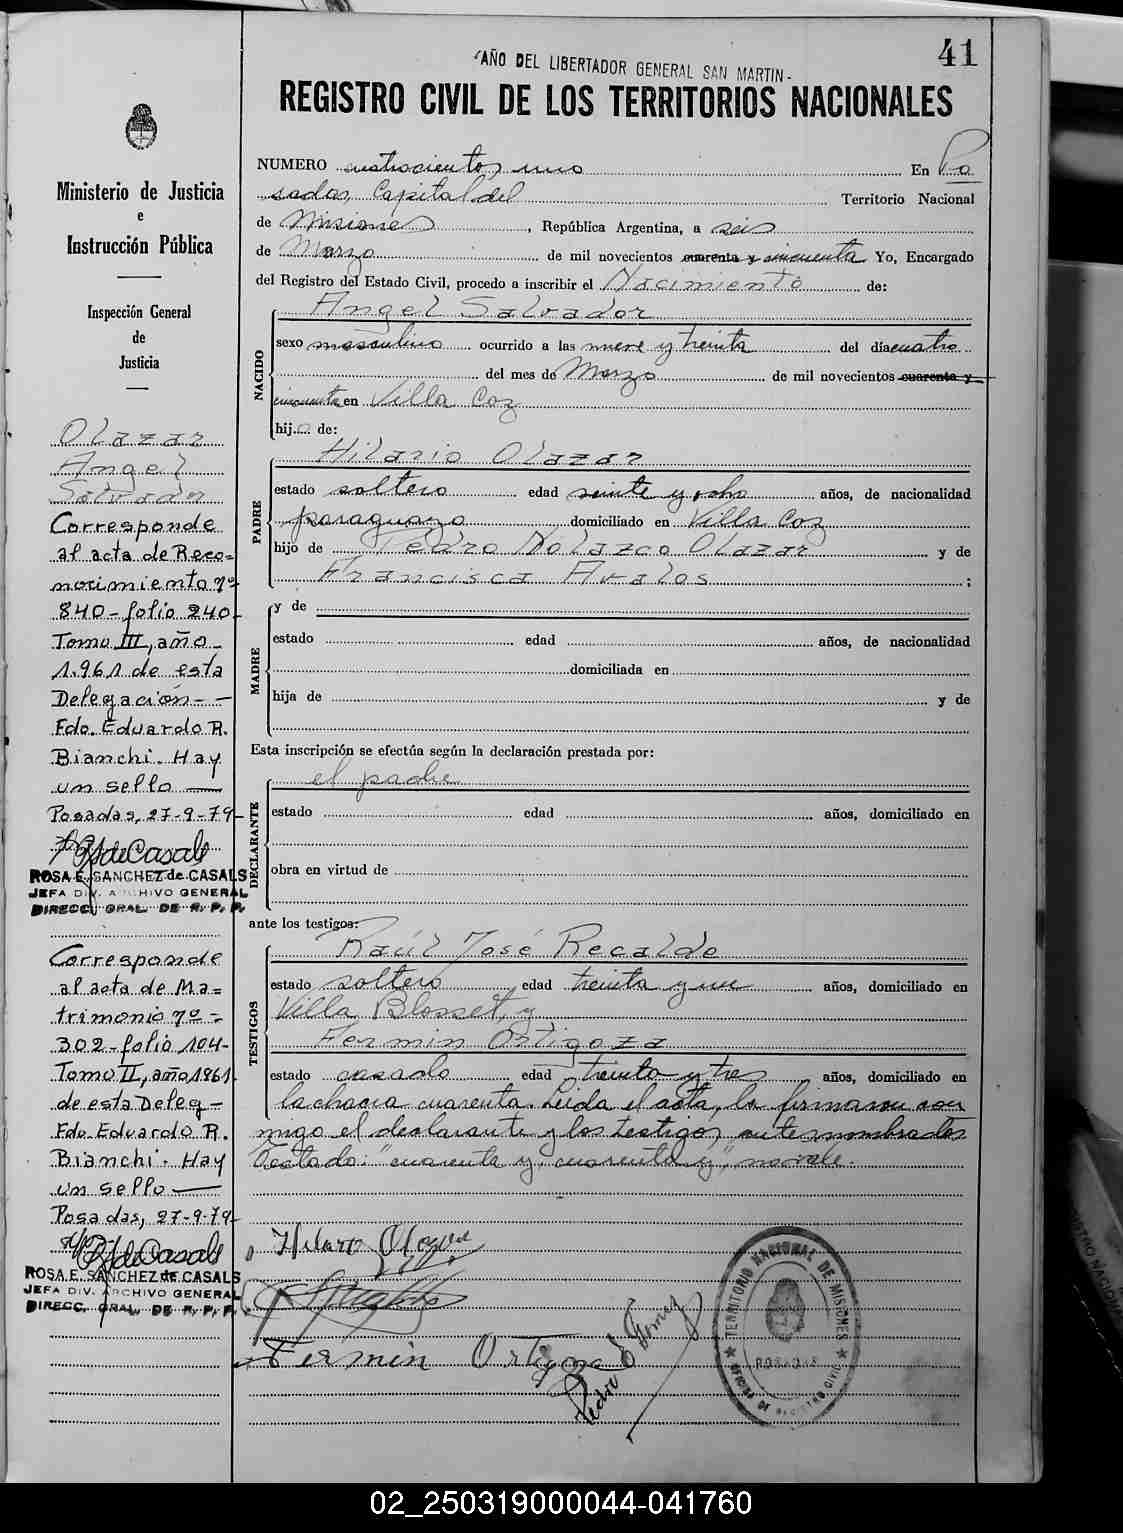 41
"AÑO DEL LIBERTADOR GENERAL SAN MARTIN"
REGISTRO CIVIL DE LOS TERRITORIOS NACIONALES
Ministerio de Justicia
e
Instrucción Pública
Inspección General
de
Justicia
Olazar
Angel
Salvador
Corresponde
al acta de Reco=
nocimiento nº
840-folio 240-
Tomo III, año
1.961 de esta
Delegación--
Fdo. Eduardo R.
Bianchi. Hay
un sello —
Posadas, 27-9-79-
ROSA E. SANCHEZ de CASALS
JEFA DIV. ARCHIVO GENERAL
DIRECC. GRAL. DE R. P. P.
Corresponde
al acta de Ma=
trimonio nº=
302-folio 104-
Tomo II, año 1961
de esta Deleg-
Fdo Eduardo R.
Bianchi. Hay
un sello —
Posadas, 27-9-79-
ROSA E. SANCHEZ de CASALS
JEFA DIV. ARCHIVO GENERAL
DIRECC. GRAL. DE R. P. P.
NUMERO cuatrocientos uno En Po
sadas, Capital del Territorio Nacional
de Misiones, República Argentina, a seis
de Marzo de mil novecientos cuarenta y cincuenta Yo, Encargado
del Registro del Estado Civil, procedo a inscribir el Nacimiento de:
NACIDO
Angel Salvador
sexo masculino ocurrido a las nueve y treinta del día cuatro
del mes de Marzo de mil novecientos cuarenta y
cincuenta en Villa Coz
hijo de:
PADRE
Hilario Olazar
estado soltero edad veinte y ocho años, de nacionalidad
paraguayo domiciliado en Villa Coz
hijo de Pedro Nolazco Olazar y de
Francisca Avalos ;
MADRE
y de
estado edad años, de nacionalidad
domiciliada en
hija de y de
Esta inscripción se efectúa según la declaración prestada por:
DECLARANTE
el padre
estado edad años, domiciliado en
obra en virtud de
ante los testigos:
TESTIGOS
Raúl José Recalde
estado soltero edad treinta y un años, domiciliado en
Villa Blosset, y
Fermin Ortigoza
estado casado edad treinta y tres años, domiciliado en
la chacra cuarenta. Leida el acta, la firmaron con
migo el declarante y los testigos antes nombrados
Testado: "cuarenta y, cuarenta y", no vale.
Fermin Ortigoza
Pedro Gomez
TERRITORIO NACIONAL DE MISIONES
POSADAS
OFICINA DE REGISTRO CIVIL
02_250319000044-041760